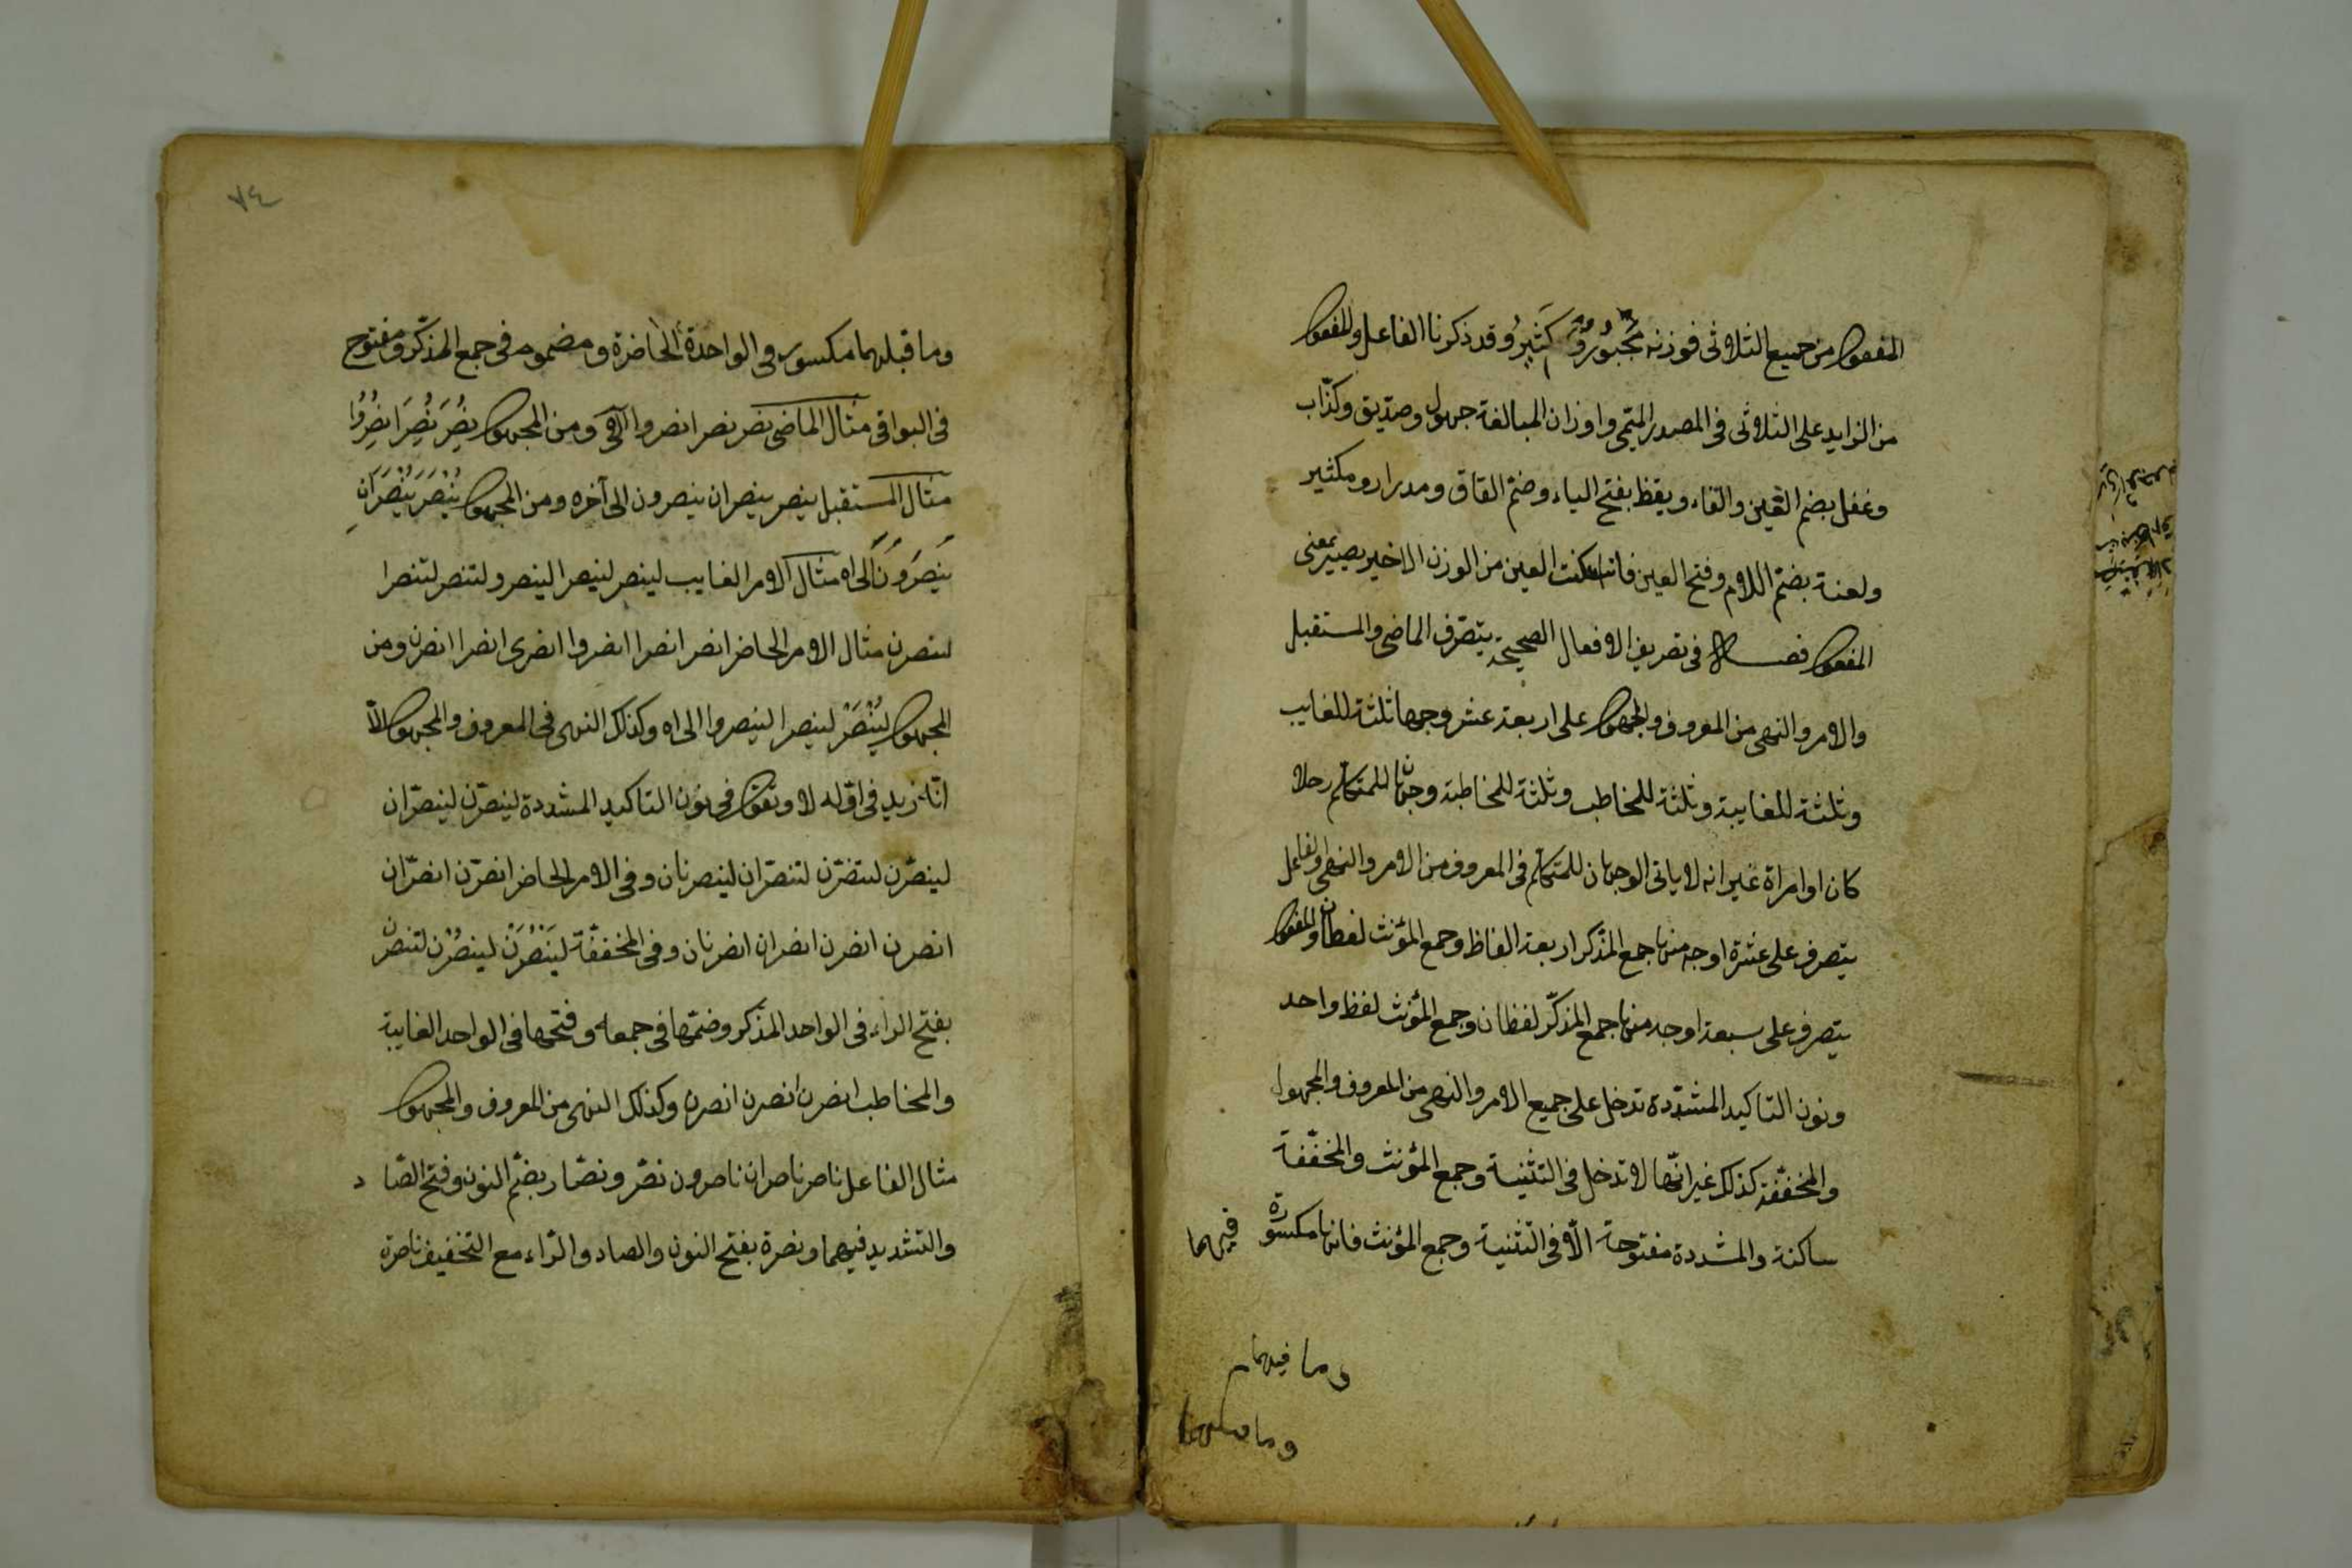 المفعول من جميع الثلاثى فوزنه مجبور وكثير وقد ذكرنا الفاعل والمفعول
من الزايد على الثلاثى فى المصدر الميمى واوزان المبالغة جهول وصديق وكذّاب
وغفل بضم الغين والفاء ويقظ بفتح الياء وضم القاف ومدرار ومكثير
ولعنة بضم اللام وفتح العين فان اسكنت العين من الوزن الاخير يصير بمعنى
المفعول فصل فى تصريف الافعال الصحيحة يتصرّف الماضى والمستقبل
والامر والنهى من المعروف والمجهول على اربعة عشر وجها ثلثة للغايب
وثلثة للغايبة وثلثة للمخاطب وثلثة للمخاطبة وجهان للمتكلم رجلا
كان او امراة غير انه لا ياتى الوجهان للمتكلم فى المعروف من الامر والنهى والفاعل
يتصرف على عشرة اوجه منها جمع المذكر اربعة الفاظ وجمع المؤنث لفظان والمفعول
يتصرف على سبعة اوجه منها جمع المذكّر لفظان وجمع المؤنث لفظ واحد
ونون التاكيد المشدّدة تدخل على جميع الامر والنهى من المعروف والمجهول
والمخفّفة كذلك غير انّها لا تدخل فى التثنية وجمع المؤنث والمخفّفة
ساكنة والمشددة مفتوحة الّا فى التثنية وجمع المؤنث فانها مكسورة فيهما
وما فيهما
وما قبلهما
٧٤
وما قبلهما مكسور فى الواحدة الحاضرة ومضموم فى جمع المذكّر ومفتوح
فى البواقى مثال الماضى نصر نصرا نصروا الى ومن المجهول نُصِرَ نُصِرَا نُصِرُوا
مثال المستقبل ينصر ينصران ينصرون الى آخره ومن المجهول يُنْصَرُ يُنْصَرَانِ
يُنصَرُونَ الى اه مثال الامر الغايب لينصر لينصرا لينصروا لتنصر لتنصرا
لينصرن مثال الامر الحاضر انصر انصرا انصروا انصرى انصرا انصرن ومن
المجهول لِيُنْصَرْ لينصرا لينصروا الى اه وكذلك النهى فى المعروف والمجهول الّا
انّه زيد فى اوّله لا وتقول فى نون التاكيد المشددة لينصرّن لينصرّان
لينصرّن لتنصرّن لتنصرّان لينصرنان وفى الامر الحاضر انصرّن انصرّان
انصرن انصرن انصران انصرنان وفى المخففّة لَيَنْصُرَنْ لينصُرُن لتنصرن
بفتح الراء فى الواحد المذكر وضمّها فى جمعه وفتحها فى الواحد الغايبة
والمخاطب انصرن انصرن انصرن وكذلك النهى من المعروف والمجهول
مثال الفاعل ناصر ناصران ناصرون نصّر ونصّار بضّم النون وفتح الصّاد
والتشديد فيهما ونصرة بفتح النون والصاد والرّاء مع التخفيف ناصرة